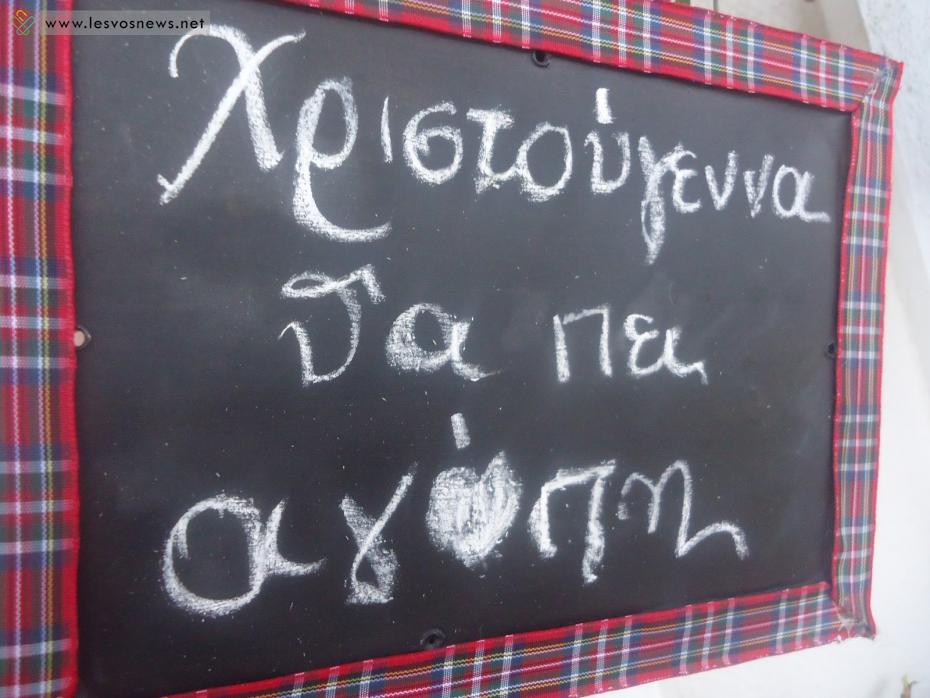 www.lesvosnews.net
Χριστούγεννα
θα πει
αγάπη